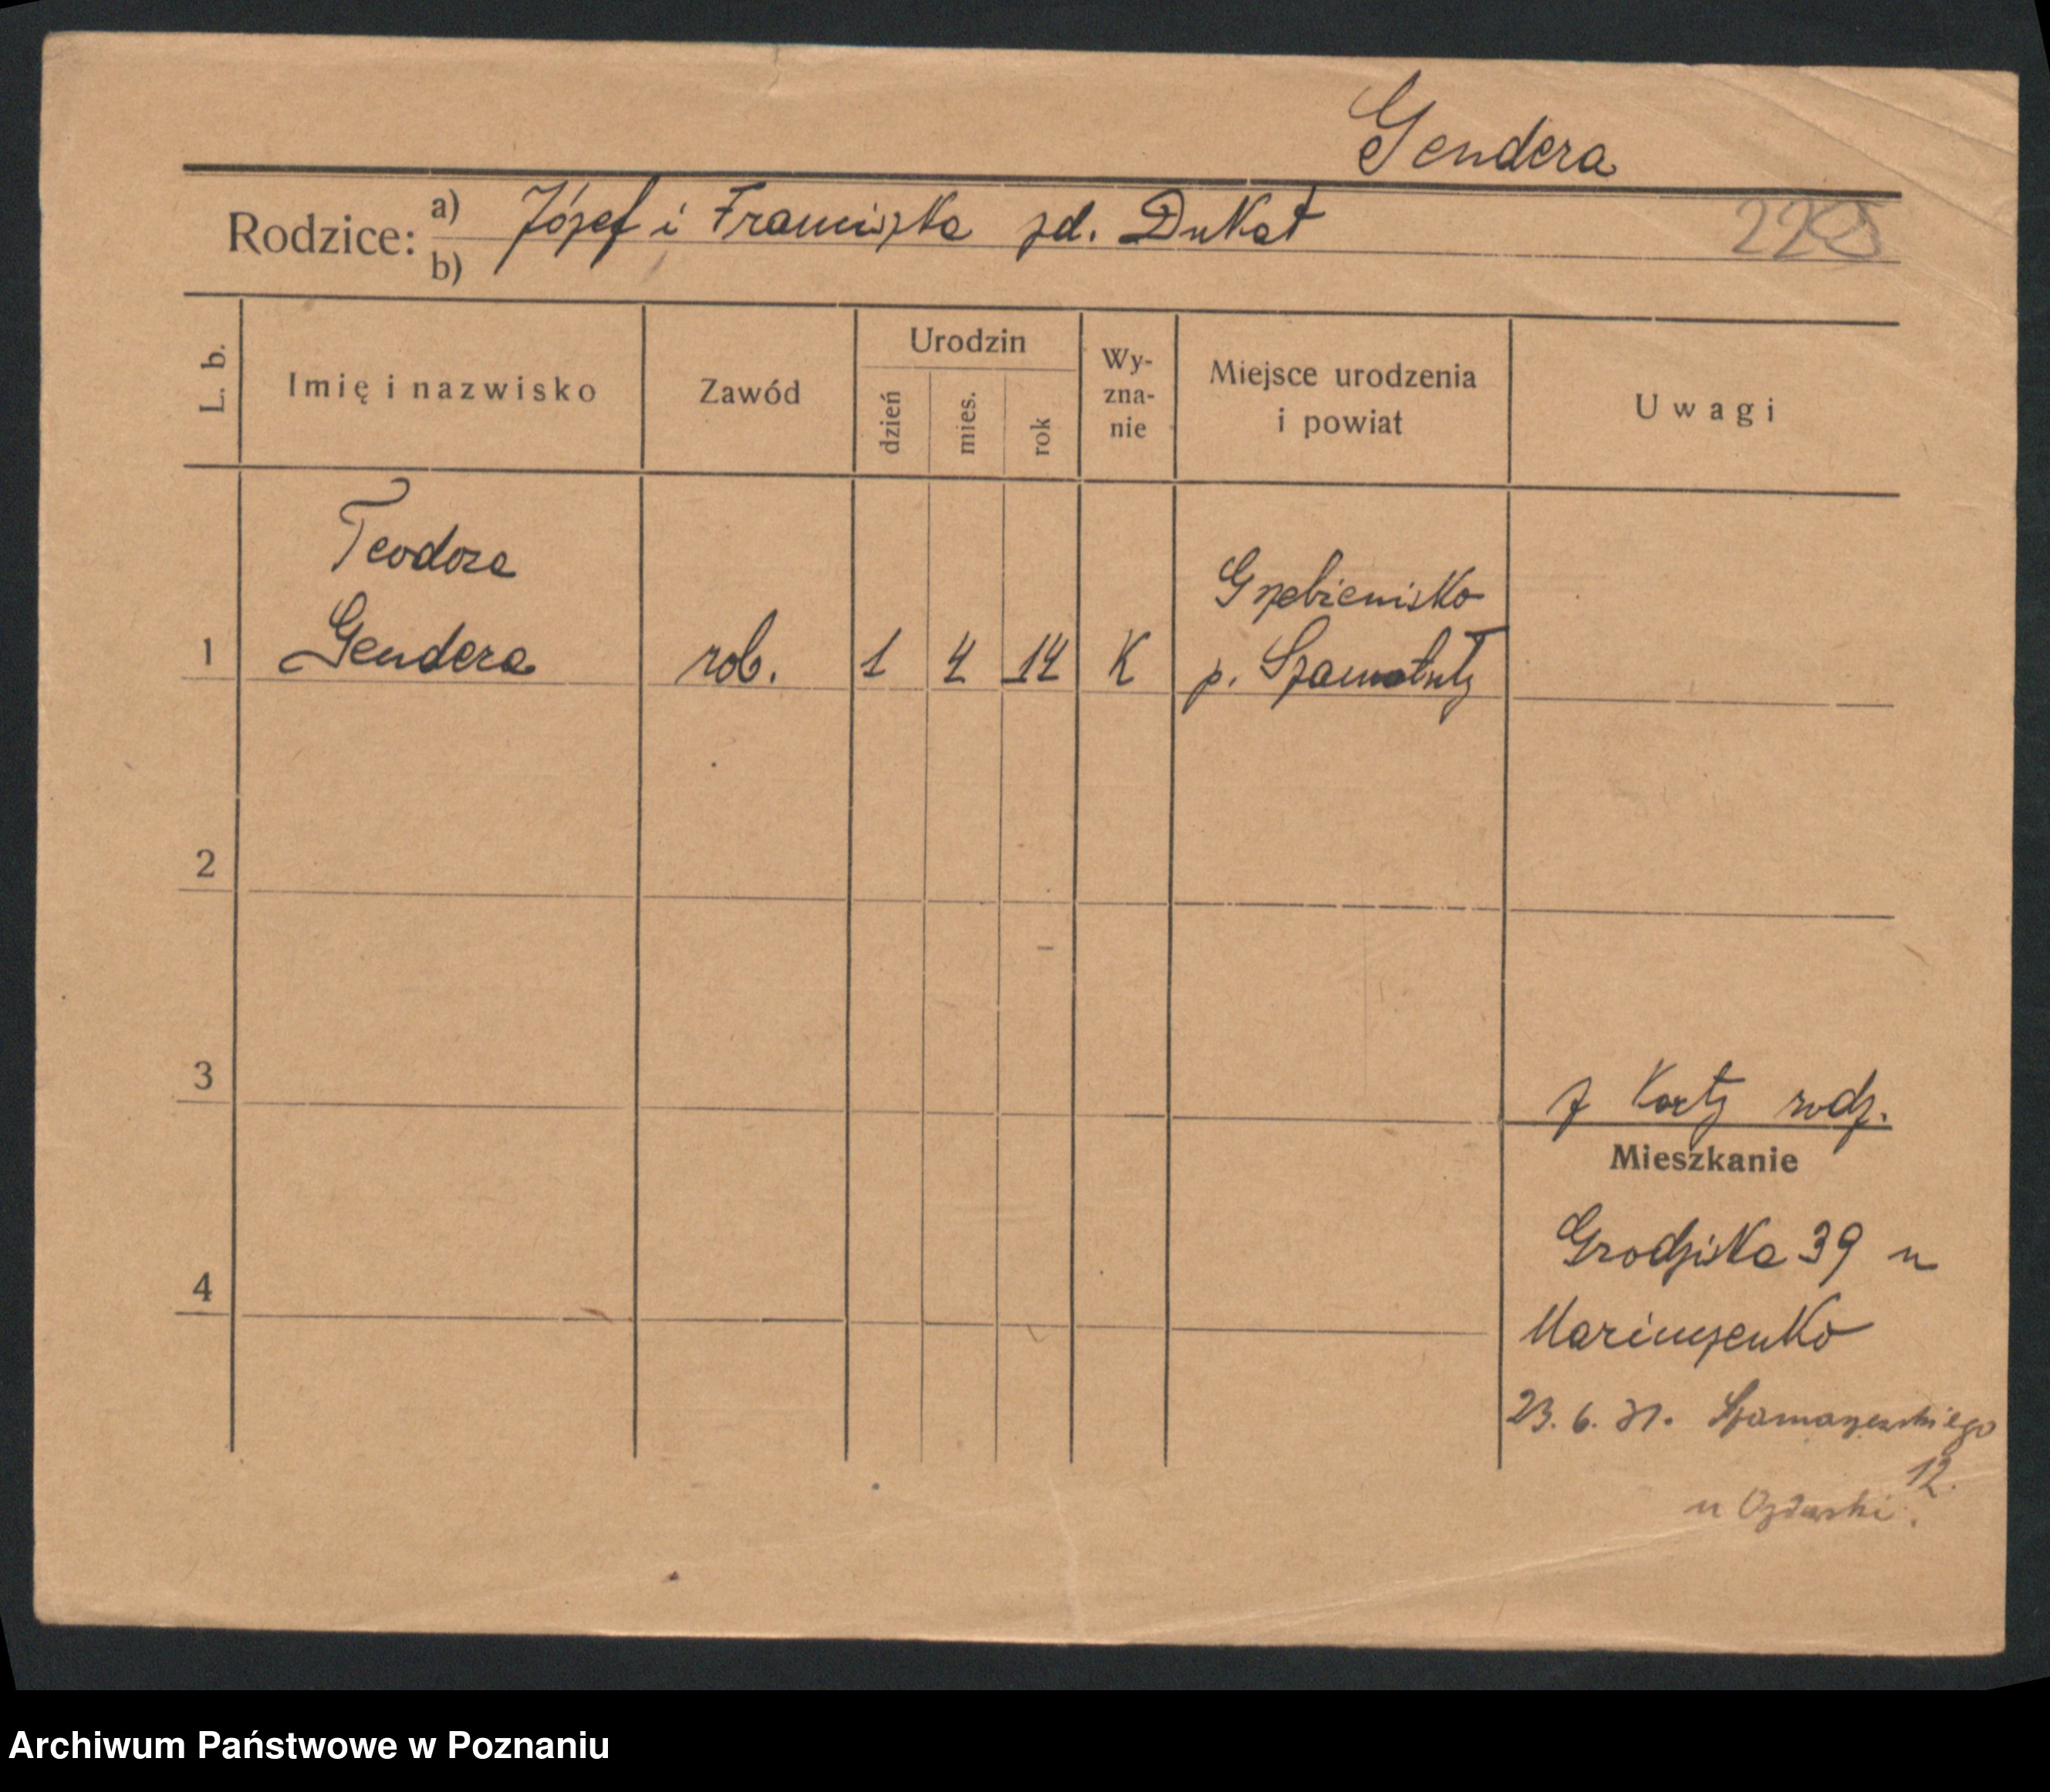 Gendera
Rodzice: a) Józef i Franciszka zd. Dukat
b)
L. b.
Imię i nazwisko
Zawód
Urodzin
dzień
mies.
rok
Wy-
zna-
nie
Miejsce urodzenia
i powiat
Uwagi
Teodora
Gendera
Grzebienisko
1 rob. 1 4 14 K p. Szamotuły
2
3
z Karty rodz.
Mieszkanie
4
Grodziska 39 u
23. 6. 31. Szamarzewskiego
12.
u
Archiwum Państwowe w Poznaniu